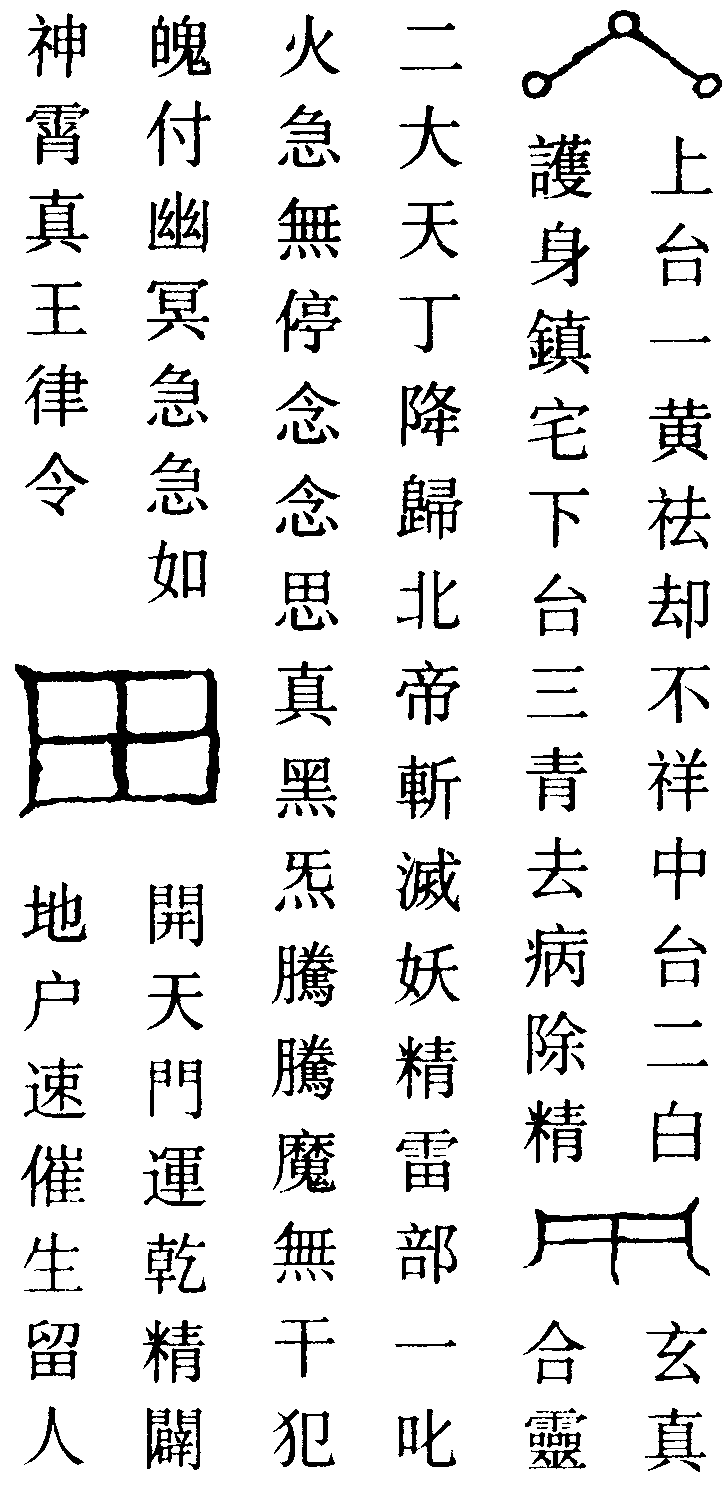 上台一黄祛却不祥中台二白
護身鎮宅下台三青去病除精
玄真
合靈
二大天丁降歸北帝斬滅妖精雷部一叱
火急無停念念思真黑炁騰騰魔無干犯
魄付幽冥急急如
神霄真王律令
開天門運乾精闢
地户速催生留人